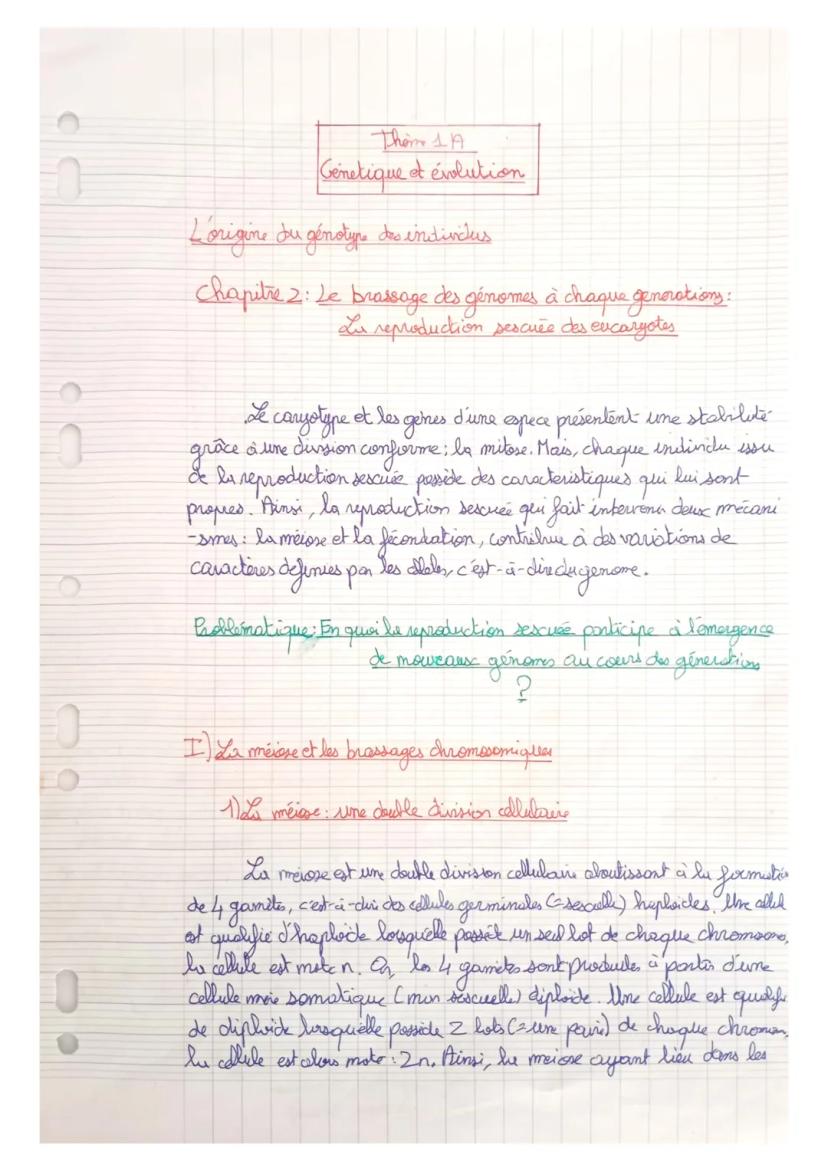 Thème 1A
Génétique et évolution
L'origine du génotype des individus
Chapitre 2: Le brassage des génomes à chaque generations:
La reproduction sescuée des eucaryotes
Le caryotype et les gènes d'une espece présentent une stabilité
grâce à une division conforme: la mitose. Mais, chaque individu issu
de la reproduction sescuée possède des caracteristiques qui lui sont
propres. Ainsi, la reproduction sescuée qui fait intervenir deux mécani
-smes: la méiose et la fécondation, contribue à des variations de
caractères définies par les allèles, c'est-à-dire du génome.
Problématique: En quoi la reproduction sescuée participe à l'émergence
de nouveaux génomes au cours des générations
?
I) La méiose et les brassages chromosomiques
1) La méiose: une double division cellulaire
La méiose est une double division cellulaire aboutissant à la formation
de 4 gamètes, c'est-à-dire des cellules germinales (=sescuelle) haploïdes. Une cellule
est qualifié d'haploïde lorsqu'elle possède un seul lot de chaque chromosome,
la cellule est noté n. Or, les 4 gamètes sont produites à partir d'une
cellule mère somatique (non sescuelle) diploïde. Une cellule est qualifié
de diploïde lorsqu'elle possède 2 lots (=une paire) de chaque chromosome,
la cellule est alors noté: 2n. Ainsi, la meiose ayant lieu dans les